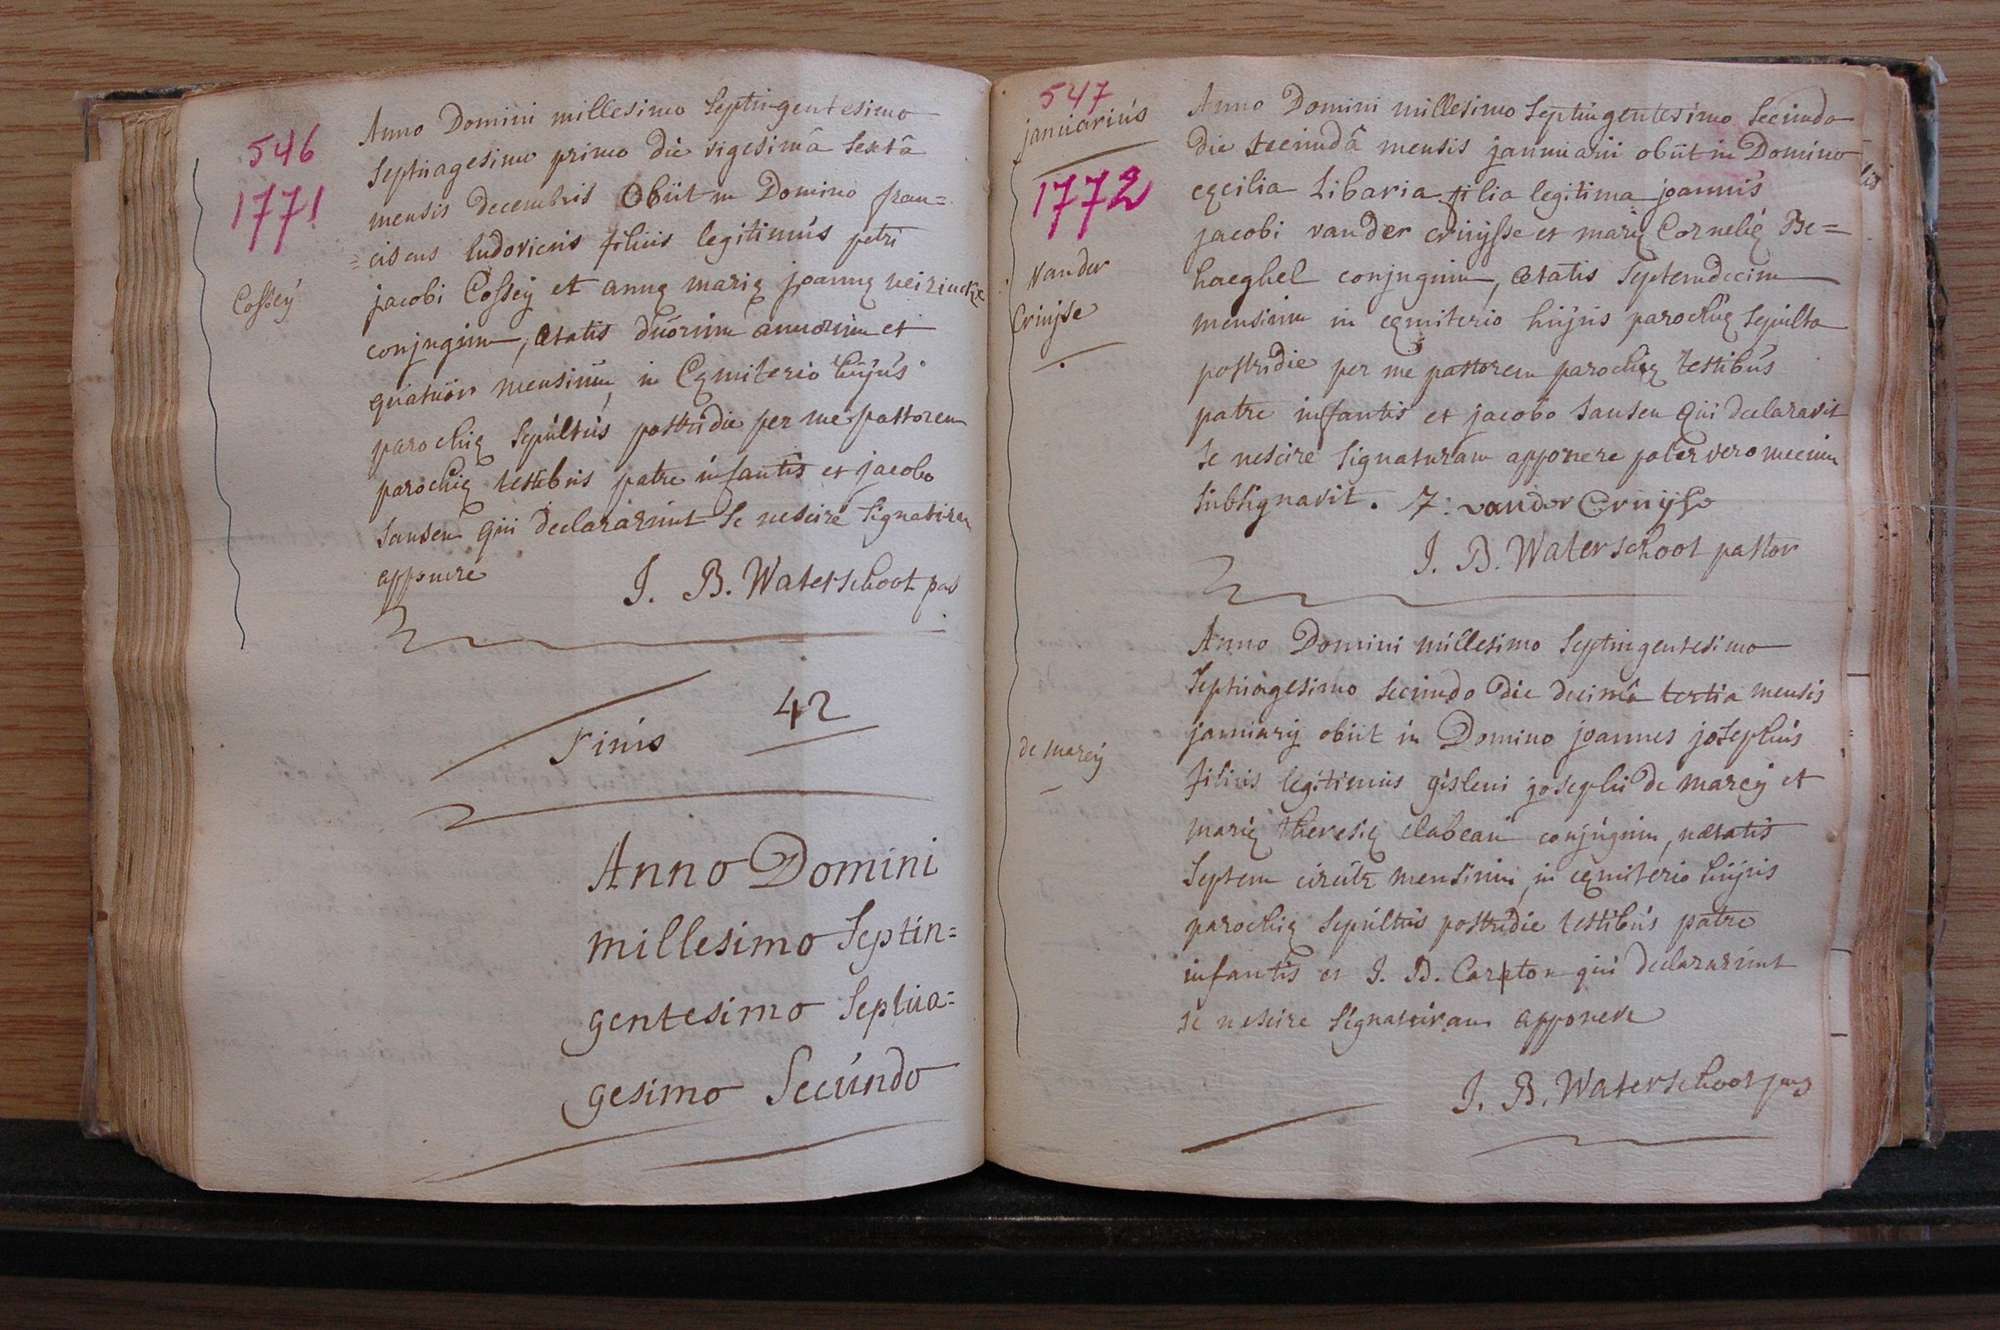 546
1771
Cossey
Anno Domini millesimo Septingentesimo
Septuagesimo primo die vigesimâ Sextâ
mensis decembris Obiit in Domino fran=
=ciscus ludovicus filius legitimus petri
jacobi Cossey et annę marię joannę
conjugum, ætatis duorum annorum et
quatuor mensium, in Cęmiterio hujus
parochię Sepultus postridie per me pastorem
parochię testibus patre infantis et jacobo
Sansen qui declararunt Se nescire Signaturam
apponere
J. B. Waterschoot pas
Finis 42
Anno Domini
millesimo Septin=
gentesimo Septua=
gesimo Secundo
547
januarius
1772
Vander
Cruysse
de marcy
Anno Domini millesimo Septingentesimo Secundo
die secundâ mensis januarii obiit in Domino
cęcilia Libaria filia legitima joannis
jacobi vander cruysse et marię Cornelię Be=
haeghel conjugum, ætatis Septemdecim
mensium in cęmiterio hujus parochię Sepulta
postridie per me pastorem parochię testibus
patre infantis et jacobo Sansen qui declaravit
Se nescire Signaturam apponere pater vero mecum
Subsignavit. J: vander Cruysse
J. B. Waterschoot pastor
Anno Domini millesimo Septingentesimo
Septuagesimo secundo die decimâ tertia mensis
januarij obiit in Domino joannes josephus
filius legitimus gisleni josephi de marcy et
marię theresię clabeau conjugum, ætatis
Septem circiter mensium, in cęmiterio hujus
parochię Sepultus postridie testibus patre
infantis et J. B. Carpton qui declararunt
se nescire Signaturam apponere
J. B. Waterschoot pas